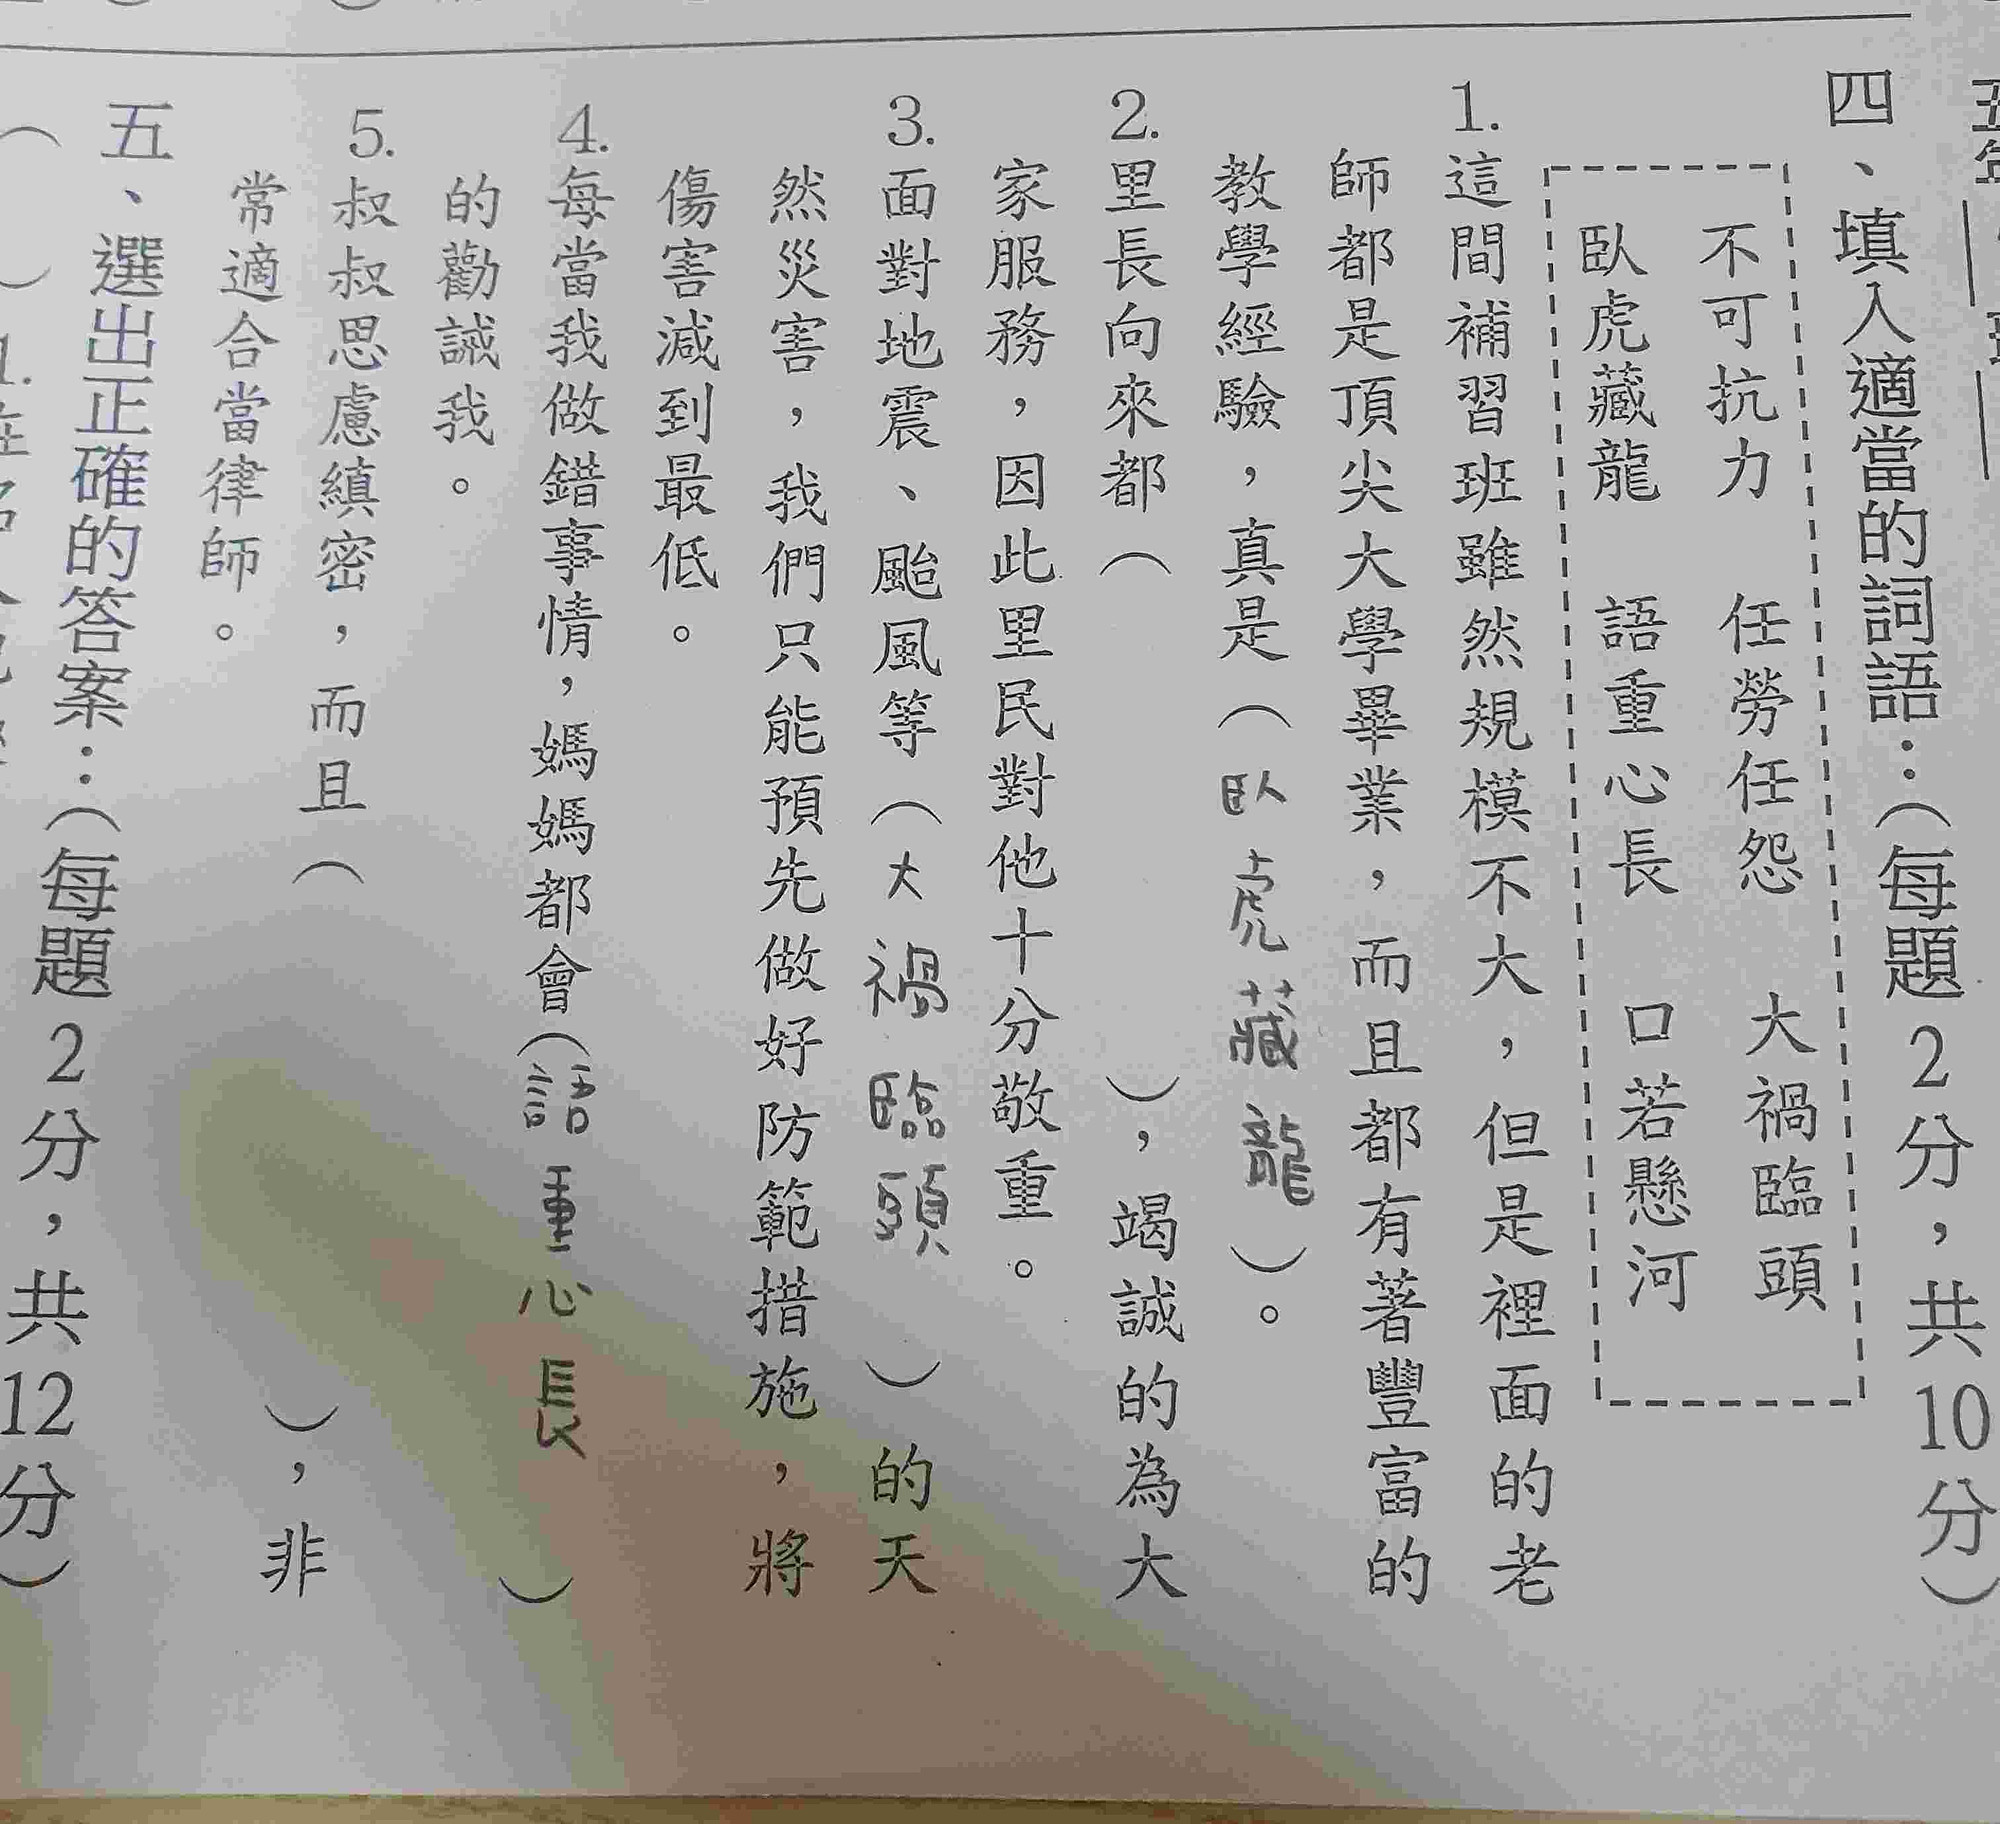 四、填入適當的詞語：（每題2分，共10分）
不可抗力　任勞任怨　大禍臨頭
臥虎藏龍　語重心長　口若懸河
1.這間補習班雖然規模不大，但是裡面的老
師都是頂尖大學畢業，而且都有著豐富的
教學經驗，真是（臥虎藏龍）。
2.里長向來都（　　　　），竭誠的為大
家服務，因此里民對他十分敬重。
3.面對地震、颱風等（大禍臨頭）的天
然災害，我們只能預先做好防範措施，將
傷害減到最低。
4.每當我做錯事情，媽媽都會（語重心長）
的勸誡我。
5.叔叔思慮縝密，而且（　　　　），非
常適合當律師。
五、選出正確的答案：（每題2分，共12分）
（　）1.